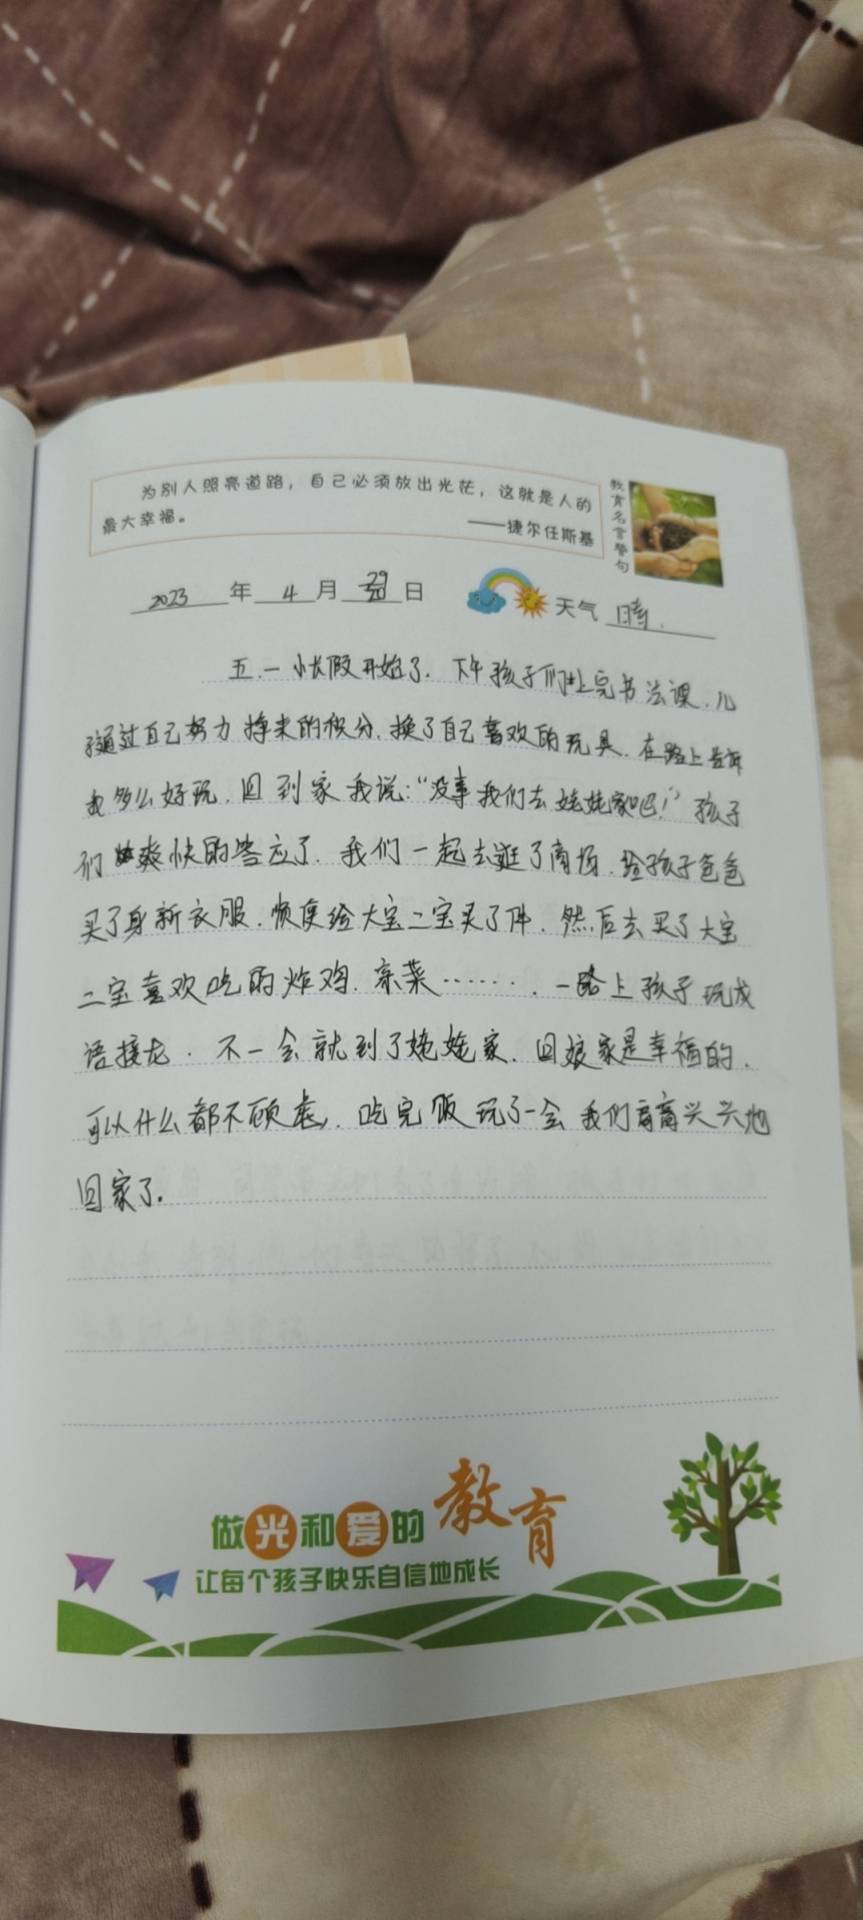 为别人照亮道路，自己必须放出光芒，这就是人的
最大幸福。
——捷尔任斯基
教育名言警句
2023年4月29日
天气 晴.
五.一小长假开始了.下午孩子们上完书法课.儿
子通过自己努力挣来的积分.换了自己喜欢的玩具.在路上告诉
我多么好玩.回到家我说:“没事我们去姥姥家吧!”孩子
们爽快的答应了.我们一起去逛了商场.给孩子爸爸
买了身新衣服.顺便给大宝二宝买了件.然后去买了大宝
二宝喜欢吃的炸鸡.凉菜…….一路上孩子玩成
语接龙.不一会就到了姥姥家.回娘家是幸福的.
可以什么都不顾虑.吃完饭玩了一会我们高高兴兴地
回家了.
做光和爱的教育
让每个孩子快乐自信地成长